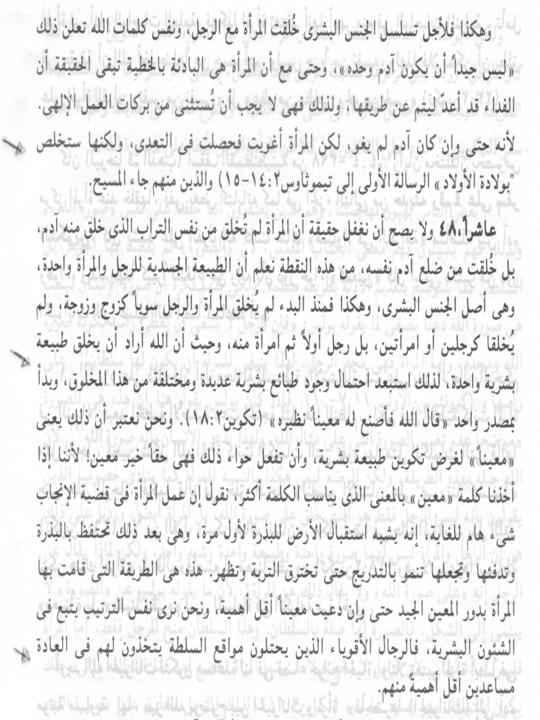 وهكذا فلأجل تسلسل الجنس البشرى خُلقت المرأة مع الرجل، ونفس كلمات الله تعلن ذلك
«ليس جيداً أن يكون آدم وحده»، وحتى مع أن المرأة هى البادئة بالخطية تبقى الحقيقة أن
الفداء قد أعدّ ليتم عن طريقها، ولذلك فهى لا يجب أن تُستثنى من بركات العمل الإلهى.
لأنه حتى وإن كان آدم لم يغو، لكن المرأة أغويت فحصلت فى التعدى، ولكنها ستخلص
"بولادة الأولاد» الرسالة الأولى إلى تيموثاوس٢:١٤-١٥) والذين منهم جاء المسيح.
عاشراً،٤٨ ولا يصح أن نغفل حقيقة أن المرأة لم تُخلق من نفس التراب الذى خلق منه آدم،
بل خُلقت من ضلع آدم نفسه، من هذه النقطة نعلم أن الطبيعة الجسدية للرجل والمرأة واحدة،
وهى أصل الجنس البشرى، وهكذا فمنذ البدء لم يُخلق المرأة والرجل سوياً كزوج وزوجة، ولم
يُخلقا كرجلين أو امرأتين، بل رجل أولاً ثم امرأة منه، وحيث أن الله أراد أن يخلق طبيعة
بشرية واحدة، لذلك استبعد احتمال وجود طبائع بشرية عديدة ومختلفة من هذا المخلوق، وبدأ
بمصدر واحد «قال الله فأصنع له معيناً نظيره» (تكوين٢:١٨). ونحن نعتبر أن ذلك يعنى
«معيناً» لغرض تكوين طبيعة بشرية، وأن تفعل حواء ذلك فهى حقاً خير معين؛ لأننا إذا
أخذنا كلمة «معين» بالمعنى الذى يناسب الكلمة أكثر، نقول إن عمل المرأة فى قضية الإنجاب
شىء هام للغاية، إنه يشبه استقبال الأرض للبذرة لأول مرة، وهى بعد ذلك تحتفظ بالبذرة
وتدفئها وتجعلها تنمو بالتدريج حتى تخترق التربة وتظهر. هذه هى الطريقة التى قامت بها
المرأة بدور المعين الجيد حتى وإن دعيت معيناً أقل أهمية، ونحن نرى نفس الترتيب يتبع فى
الشئون البشرية، فالرجال الأقوياء الذين يحتلون مواقع السلطة يتخذون لهم فى العادة
مساعدين أقل أهمية منهم.